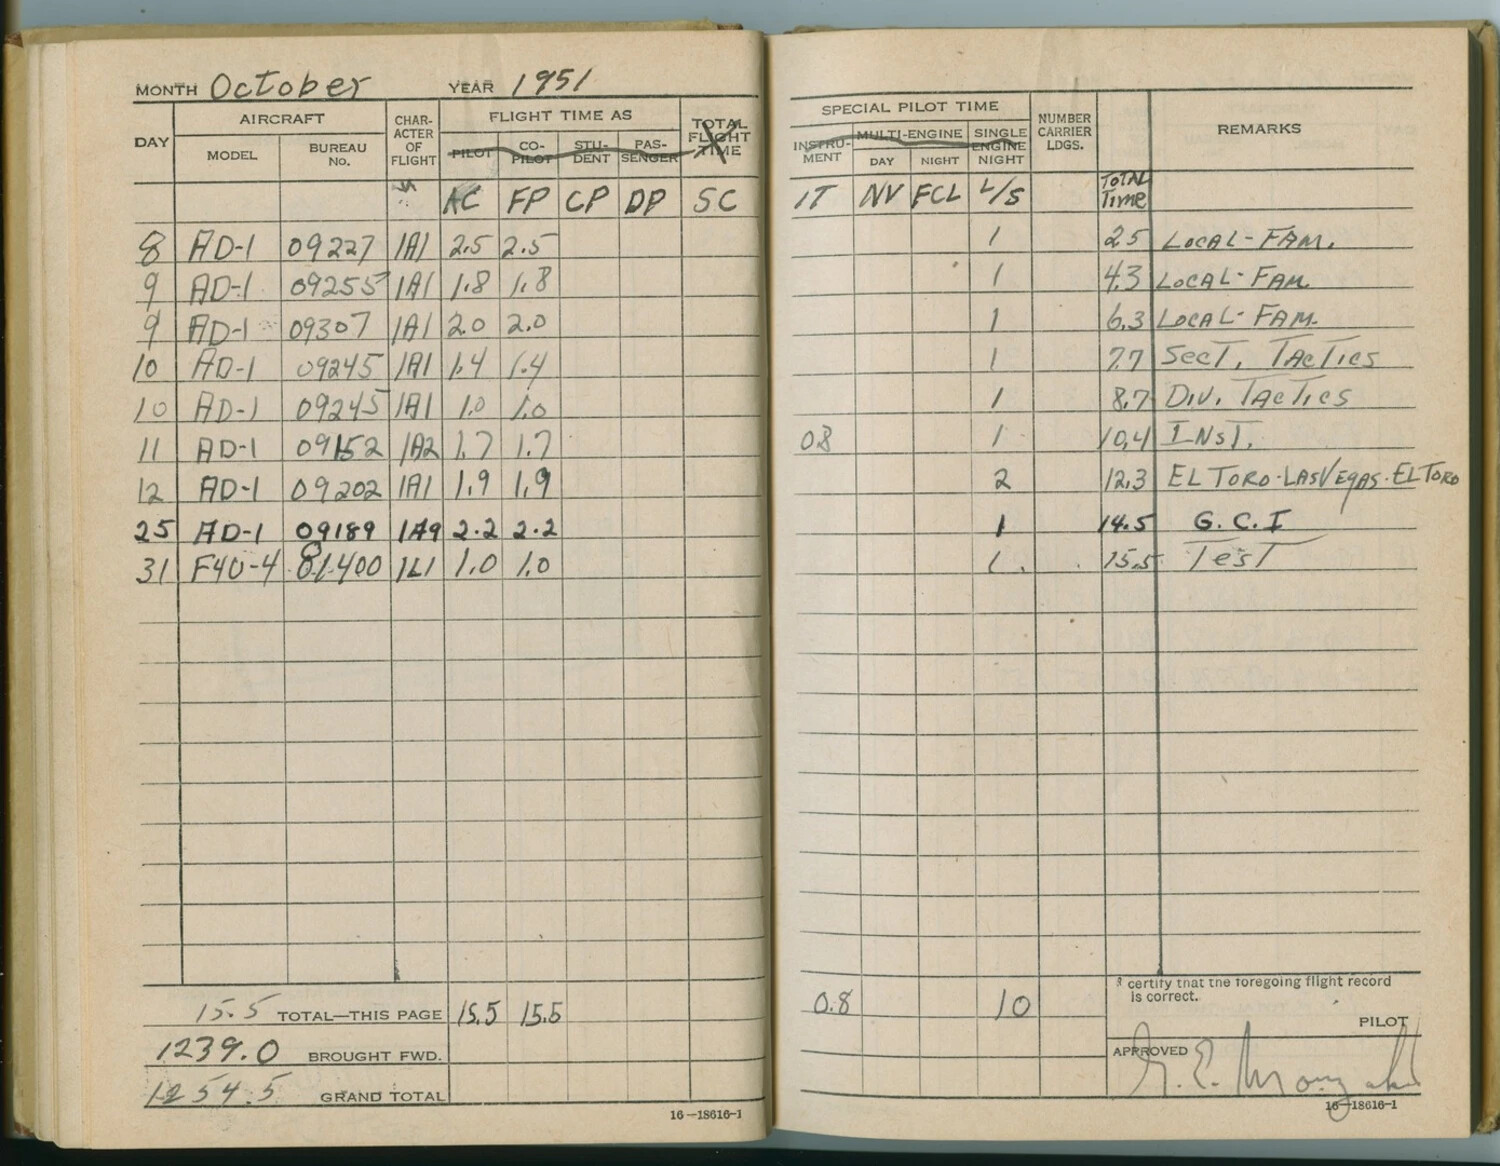 MONTH October YEAR 1951
DAY AIRCRAFT CHAR-ACTER OF FLIGHT FLIGHT TIME AS TOTAL FLIGHT TIME
MODEL BUREAU No. PILOT CO-PILOT STU-DENT PAS-SENGER
AC FP CP DP SC
8 AD-1 09227 1A1 2.5 2.5
9 AD-1 09255 1A1 1.8 1.8
9 AD-1 09307 1A1 2.0 2.0
10 AD-1 09245 1A1 1.4 1.4
10 AD-1 09245 1A1 1.0 1.0
11 AD-1 09152 1A2 1.7 1.7
12 AD-1 09202 1A1 1.9 1.9
25 AD-1 09189 1A9 2.2 2.2
31 F4U-4 81400 1L1 1.0 1.0
15.5 TOTAL—THIS PAGE 15.5 15.5
1239.0 BROUGHT FWD.
1254.5 GRAND TOTAL
16—18616-1
SPECIAL PILOT TIME NUMBER CARRIER LDGS. REMARKS
INSTRU-MENT MULTI-ENGINE SINGLE ENGINE NIGHT
DAY NIGHT
IT NV FCL L/S TOTAL Time
1 2.5 LOCAL-FAM.
1 4.3 LOCAL-FAM
1 6.3 LOCAL-FAM.
1 7.7 SecT. TAcTics
1 8.7 DIV. TAcTics
0.8 1 10.4 INsT.
2 12.3 EL TORO-LAS VEgAS-EL TORO
1 14.5 G.C.I
1 15.5 TesT
0.8 10
I certify that the foregoing flight record
is correct.
PILOT
APPROVED
16—18616-1